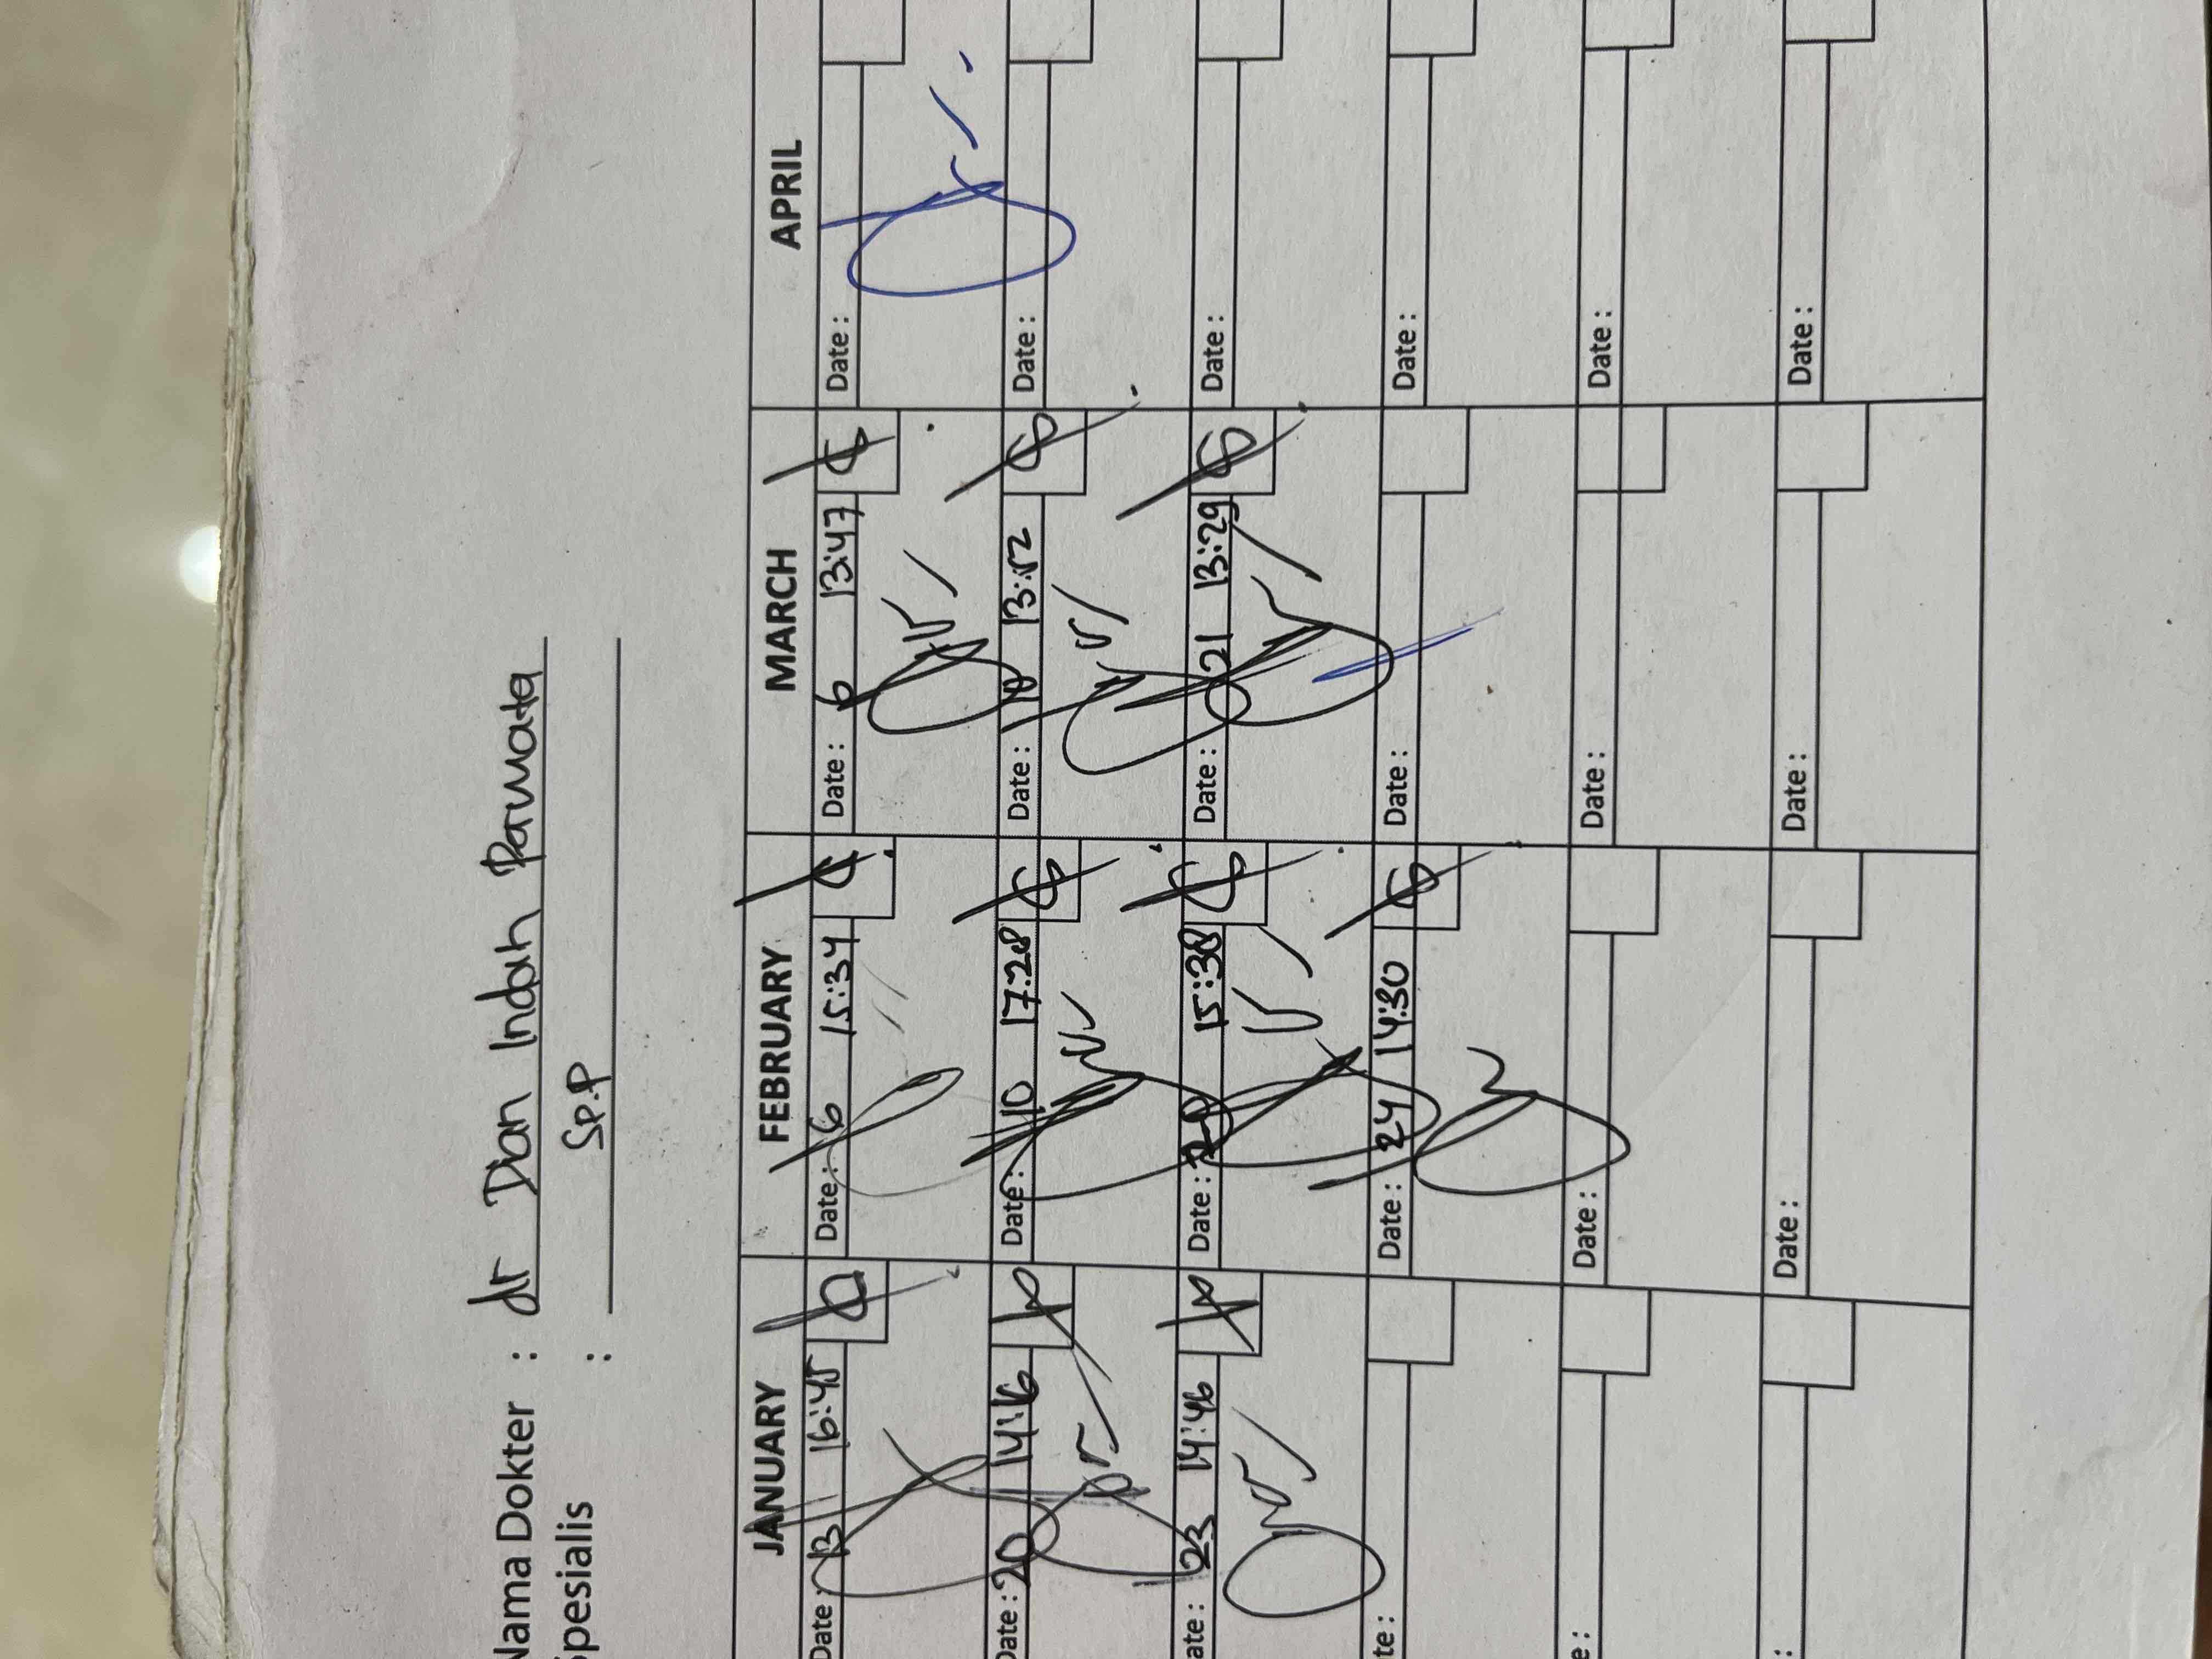 Nama Dokter : dr Dian Indah Permata
Spesialis : Sp.P
JANUARY FEBRUARY MARCH APRIL
Date : 13 16:45 Date : 6 15:34 Date : 6 13:47 Date :
Date : 20 14:16 Date : 10 17:28 Date : 13:52 Date :
Date : 23 14:46 Date : 15:38 Date : 21 13:29 Date :
Date : Date : 24 14:30 Date : Date :
Date : Date : Date : Date :
Date : Date : Date :